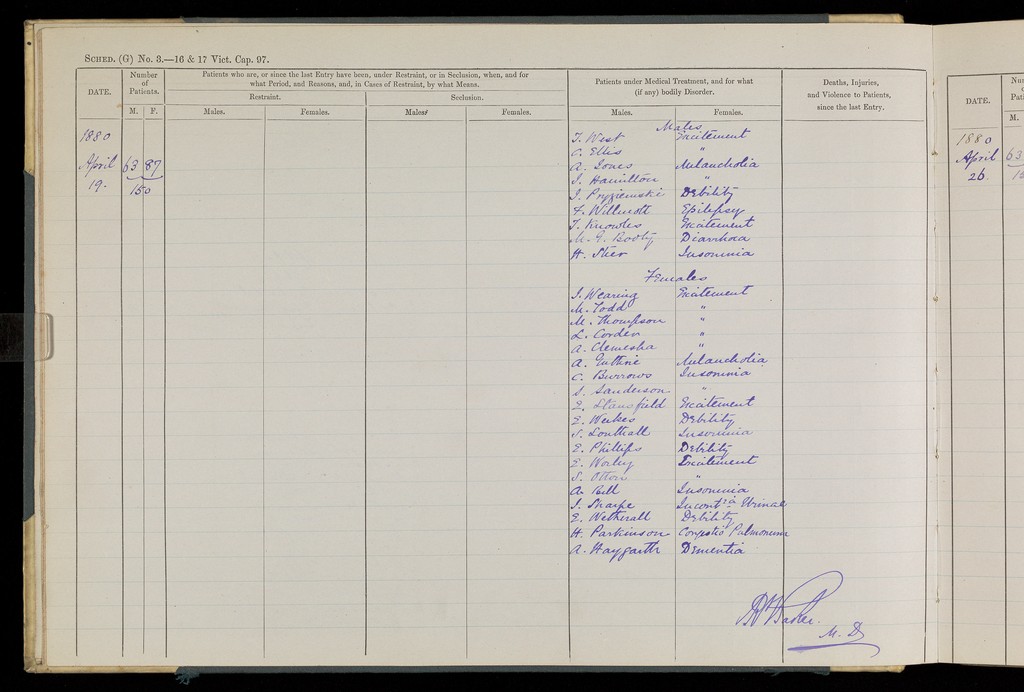 SCHED. (G) No. 3.—16 & 17 Vict. Cap. 97.
DATE.
Number of Patients.
M. F.
Patients who are, or since the last Entry have been, under Restraint, or in Seclusion, when, and for
what Period, and Reasons, and, in Cases of Restraint, by what Means.
Restraint. Seclusion.
Males. Females. Males. Females.
Patients under Medical Treatment, and for what
(if any) bodily Disorder.
Males. Females.
Deaths, Injuries,
and Violence to Patients,
since the last Entry.
1880
April 63 87
19. 150
Males
J. West Excitement
C. Ellis "
A. Jones Melancholia
J. Hamilton "
J. Pryziemski Debility
F. Willmott Epilepsy
T. Knowles Excitement
M. G. Booty Diarrhoea
H. Sher Insomnia
Females
J. Wearing Excitement
M. Todd "
M. Thompson "
L. Corder "
A. Clemesha "
A. Guthrie Melancholia
C. Burrows Insomnia
S. Sanderson "
E. Stansfield Excitement
E. Weekes Debility
S. Southall Insomnia
E. Phillips Debility
E. Worley Excitement
S. Otton "
A. Rill Insomnia
J. Sharpe Incont. Urinae
E. Wetherall Debility
H. Parkinson Congestio Pulmonum
A. Haygarth Dementia
Baker.
M.D.
DATE.
M.
1880
April 63
26